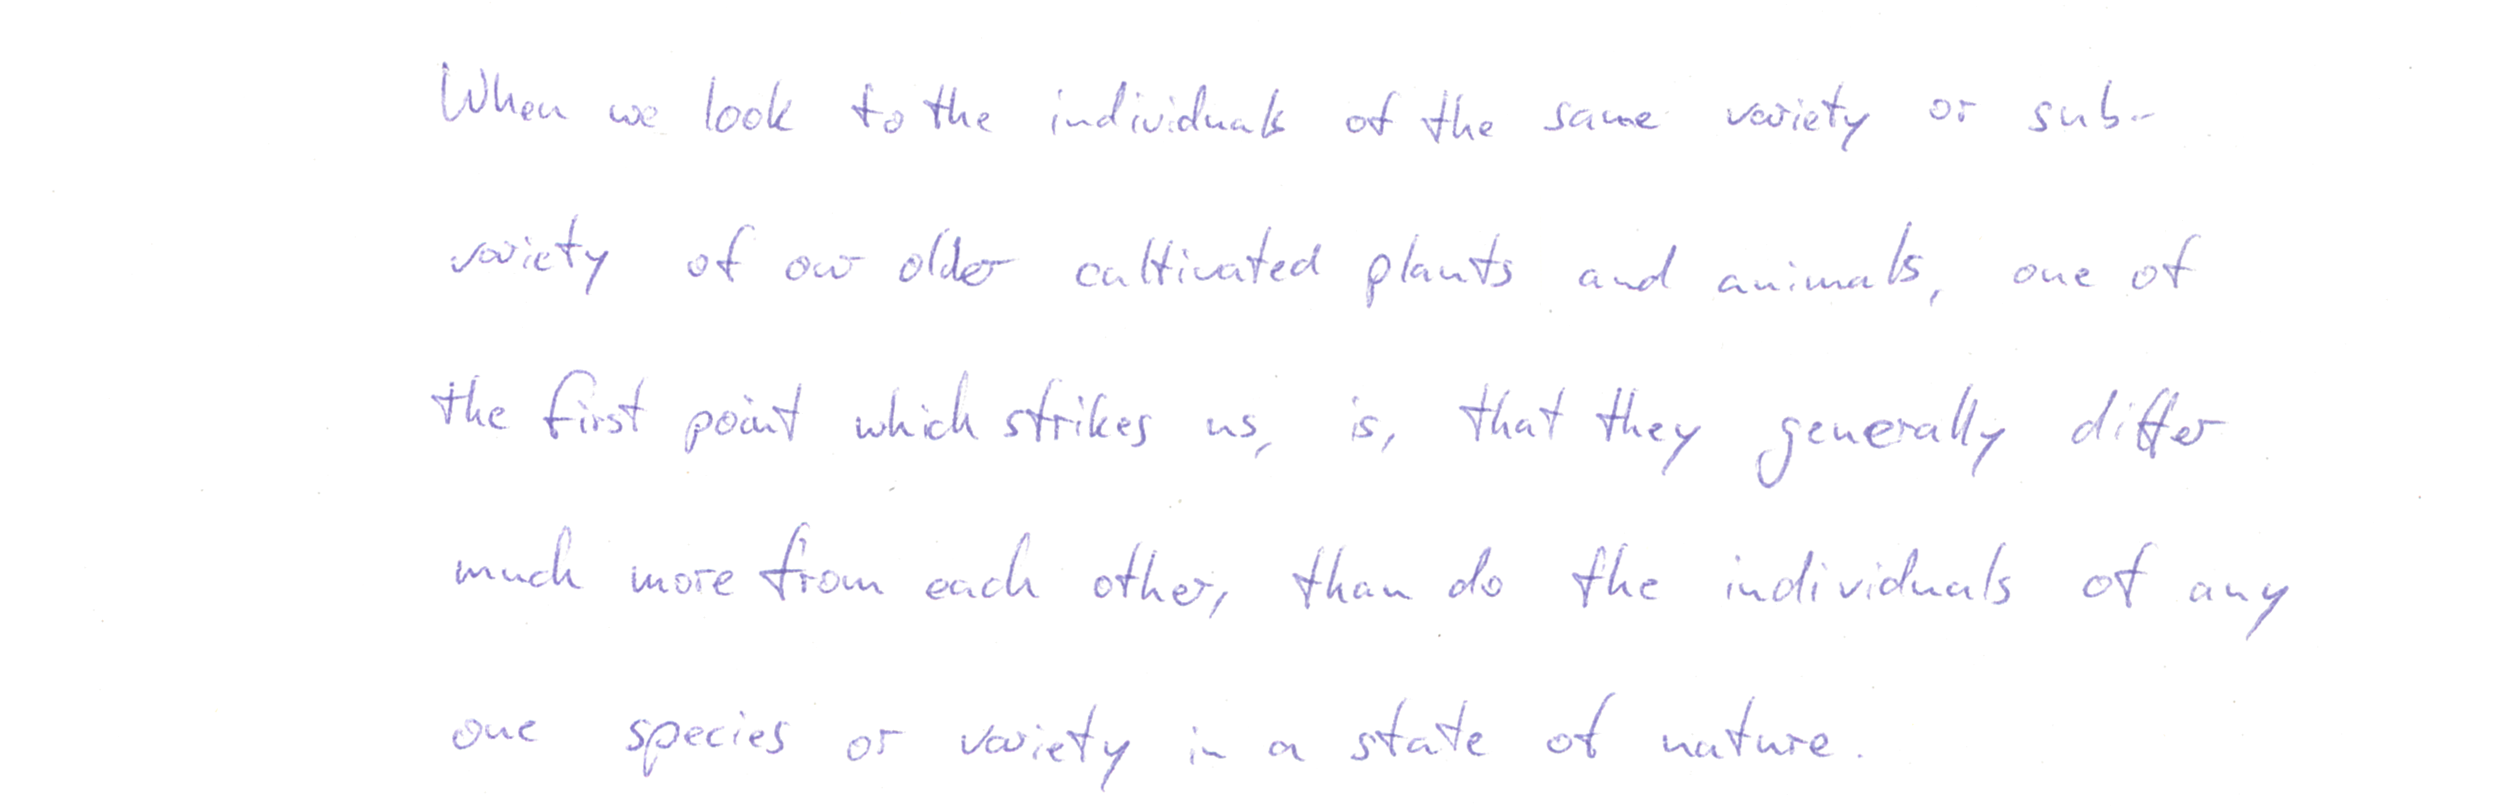 When we look to the individuals of the same variety or sub-
variety of our older cultivated plants and animals, one of
the first point which strikes us, is, that they generally differ
much more from each other, than do the individuals of any
one species or variety in a state of nature.